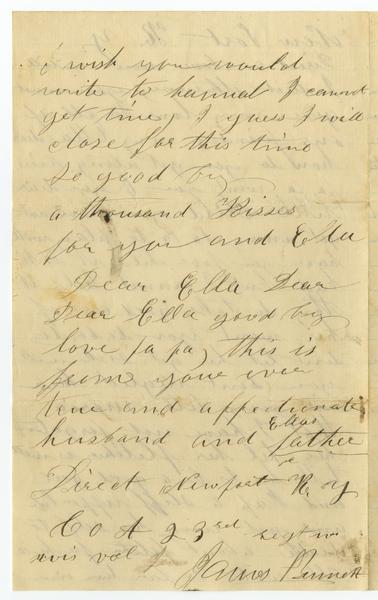 i wish you would
write to hannah I cannot
get time, I guess I will
close for this time
so good by
a thousand Kisses
for you and Ella
Dear Ella Dear
Dear Ella good by
love pa pa, this is
from your ever
true and affectionate
husband and Ellas father
Direct Newport Ky
Co A 23rd regt
wis vol
James